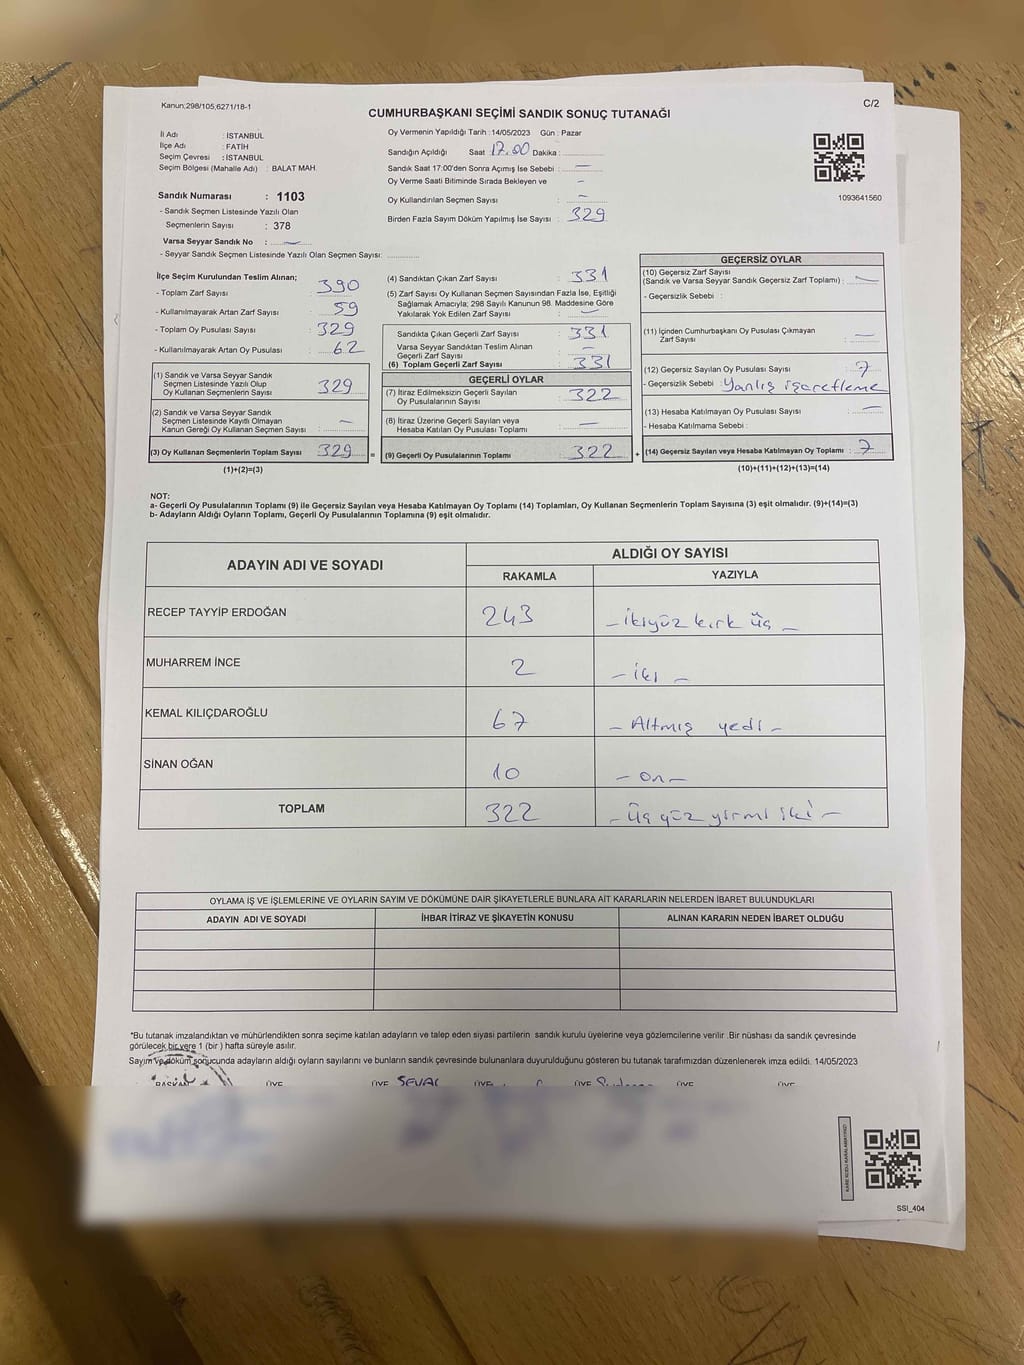 Kanun;298/105,6271/18-1
C/2
CUMHURBAŞKANI SEÇİMİ SANDIK SONUÇ TUTANAĞI
İli Adı : İSTANBUL
İlçe Adı : FATİH
Seçim Çevresi : İSTANBUL
Seçim Bölgesi (Mahalle Adı) : BALAT MAH.
Sandık Numarası : 1103
- Sandık Seçmen Listesinde Yazılı Olan
Seçmenlerin Sayısı : 378
Varsa Seyyar Sandık No : —
- Seyyar Sandık Seçmen Listesinde Yazılı Olan Seçmen Sayısı:
Oy Vermenin Yapıldığı Tarih : 14/05/2023 Gün : Pazar
Sandığın Açıldığı Saat 17.00 Dakika :
Sandık Saat 17:00'den Sonra Açımış İse Sebebi : —
Oy Verme Saati Bitiminde Sırada Bekleyen ve –
Oy Kullandırılan Seçmen Sayısı : –
Birden Fazla Sayım Döküm Yapılmış İse Sayısı : 329
1093641560
İlçe Seçim Kurulundan Teslim Alınan;
- Toplam Zarf Sayısı : 390
- Kullanılmayarak Artan Zarf Sayısı : 59
- Toplam Oy Pusulası Sayısı : 329
- Kullanılmayarak Artan Oy Pusulası : 62
(1) Sandık ve Varsa Seyyar Sandık
Seçmen Listesinde Yazılı Olup
Oy Kullanan Seçmenlerin Sayısı : 329
(2) Sandık ve Varsa Seyyar Sandık
Seçmen Listesinde Kayıtlı Olmayan
Kanun Gereği Oy Kullanan Seçmen Sayısı : —
(3) Oy Kullanan Seçmenlerin Toplam Sayısı : 329 =
(1)+(2)=(3)
(4) Sandıktan Çıkan Zarf Sayısı : 331
(5) Zarf Sayısı Oy Kullanan Seçmen Sayısından Fazla İse, Eşitliği
Sağlamak Amacıyla; 298 Sayılı Kanunun 98. Maddesine Göre
Yakılarak Yok Edilen Zarf Sayısı : —
Sandıkta Çıkan Geçerli Zarf Sayısı : 331
Varsa Seyyar Sandıktan Teslim Alınan
Geçerli Zarf Sayısı : –
(6) Toplam Geçerli Zarf Sayısı : 331
GEÇERLİ OYLAR
(7) İtiraz Edilmeksizin Geçerli Sayılan
Oy Pusulalarının Sayısı : 322
(8) İtiraz Üzerine Geçerli Sayılan veya
Hesaba Katılan Oy Pusulası Toplamı : —
(9) Geçerli Oy Pusulalarının Toplamı : 322 +
GEÇERSİZ OYLAR
(10) Geçersiz Zarf Sayısı
(Sandık ve Varsa Seyyar Sandık Geçersiz Zarf Toplamı) : —
- Geçersizlik Sebebi :
(11) İçinden Cumhurbaşkanı Oy Pusulası Çıkmayan
Zarf Sayısı : —
(12) Geçersiz Sayılan Oy Pusulası Sayısı : 7
- Geçersizlik Sebebi : Yanlış işaretleme
(13) Hesaba Katılmayan Oy Pusulası Sayısı : —
- Hesaba Katılmama Sebebi :
(14) Geçersiz Sayılan veya Hesaba Katılmayan Oy Toplamı : 7
(10)+(11)+(12)+(13)=(14)
NOT:
a- Geçerli Oy Pusulalarının Toplamı (9) ile Geçersiz Sayılan veya Hesaba Katılmayan Oy Toplamı (14) Toplamları, Oy Kullanan Seçmenlerin Toplam Sayısına (3) eşit olmalıdır. (9)+(14)=(3)
b- Adayların Aldığı Oyların Toplamı, Geçerli Oy Pusulalarının Toplamına (9) eşit olmalıdır.
ADAYIN ADI VE SOYADI
ALDIĞI OY SAYISI
RAKAMLA YAZIYLA
RECEP TAYYİP ERDOĞAN 243 – ikiyüz kırk üç –
MUHARREM İNCE 2 – iki –
KEMAL KILIÇDAROĞLU 67 – Altmış yedi –
SİNAN OĞAN 10 – on –
TOPLAM 322 – üç yüz yirmi iki –
OYLAMA İŞ VE İŞLEMLERİNE VE OYLARIN SAYIM VE DÖKÜMÜNE DAİR ŞİKAYETLERLE BUNLARA AİT KARARLARIN NELERDEN İBARET BULUNDUKLARI
ADAYIN ADI VE SOYADI İHBAR İTİRAZ VE ŞİKAYETİN KONUSU ALINAN KARARIN NEDEN İBARET OLDUĞU
*Bu tutanak imzalandıktan ve mühürlendikten sonra seçime katılan adayların ve talep eden siyasi partilerin sandık kurulu üyelerine veya gözlemcilerine verilir. Bir nüshası da sandık çevresinde
görülecek bir yere 1 (bir ) hafta süreyle asılır.
Sayım ve döküm sonucunda adayların aldığı oyların sayılarını ve bunların sandık çevresinde bulunanlara duyurulduğunu gösteren bu tutanak tarafımızdan düzenlenerek imza edildi. 14/05/2023
BAŞKAN ÜYE ÜYE SEVAL ÜYE ÜYE ÜYE ÜYE
SSI_404